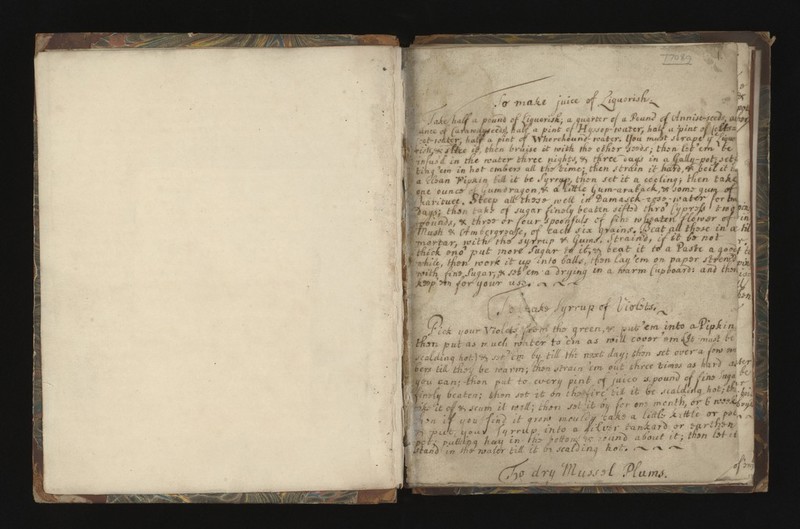 To make juice of Liquorish.
Take half a pound of Liquorish, a quarter of a Pound of Annist-seeds, a
ounce of Carawayseeds, half a pint of Hyssop-water, half a pint of
water, half a pint of Whorehound water. You must scrape ye
& slice it, then bruise it with the other seeds; then let 'em be
infusd in the water three nights, & three days in a Gally-pot, set
ting 'em in hot embers all the time; then strain it hard, & boil it in
a clean Pipkin till it be Syrrup, then set it a cooling; then take
one ounce of Gumdragon, & a little Gum-araback, & some gum of
Steep all these well in Damask-rose-water for two
days; then take of sugar finely beaten sifted thro' Cypress two
pounds, & three or four spoonfuls of fine wheaten flower of
Musk & Ambergrease, of each six grains. Beat all these in a
mortar, with the syrrup & Gums. Straind, if it be not
thick eno' put more Sugar to it, & beat it to a Paste a good
while, then work it up into balls, then lay 'em on paper strewd
with fine Sugar, & set 'em a drying in a warm Cupboard: and then
keep 'em for your use.
To make Syrrup of Violets.
Pick your Violets from the green, & put 'em into a Pipkin,
then put as much water to 'em as will cover 'em. It must be
scalding hot, & set 'em by till the next day; then set over a few
till they be warm; then strain 'em out three times as hard as
you can; then put to every pint of juice a pound of fine sugar
finely beaten; then set it on the fire till it be scalding hot; then
take it of & scum it well; then set it by for one month, or 6 weeks
then if you find it grow mouldy take a little kettle or pot,
& put your Syrrup into a silver tankard or earthen
pot, putting hay in the bottom & round about it; then let it
stand in the water till it be scalding hot.
To dry Mussel Plums.